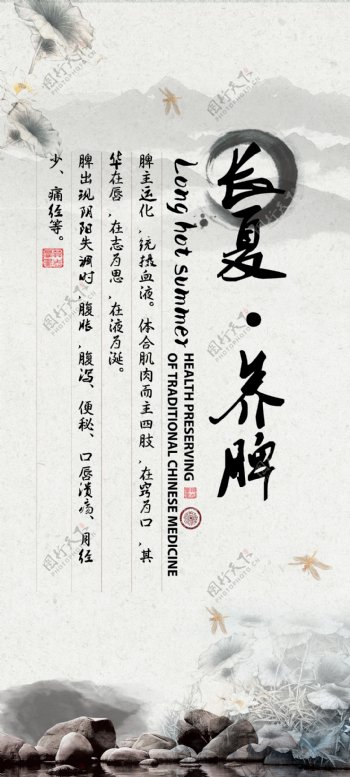 长夏·养脾
Long hot summer
HEALTH PRESERVING
OF TRADITIONAL CHINESE MEDICINE
脾主运化,统摄血液。体合肌肉而主四肢,在窍为口,其
华在唇,在志为思,在液为涎。
脾出现阴阳失调时,腹胀,腹泻、便秘、口唇溃疡、月经
少、痛经等。